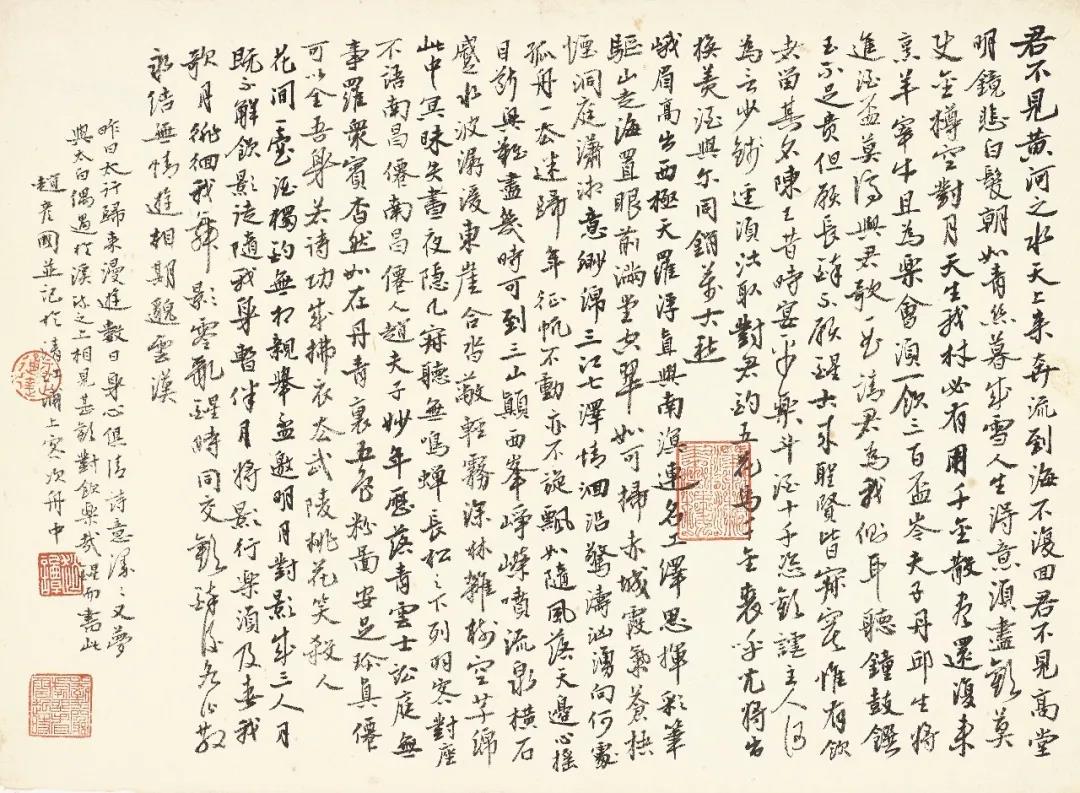 君不見黃河之水天上來奔流到海不復回君不見高堂
明鏡悲白髮朝如青絲暮成雪人生得意須盡歡莫
使金樽空對月天生我材必有用千金散盡還復來
烹羊宰牛且為樂會須一飲三百盃岑夫子丹邱生將
進酒盃莫停與君歌一曲請君為我側耳聽鐘鼓饌
玉不足貴但願長醉不願醒古來聖賢皆寂寞惟有飲
者留其名陳王昔時宴平樂斗酒十千恣歡謔主人何
為言少錢逕須沽取對君酌五花馬千金裘呼兒將出
換美酒與尔同銷萬古愁
峨眉高出西極天羅浮直與南溟連名工繹思揮彩筆
驅山走海置眼前滿堂空翠如可掃赤城霞氣蒼梧
煙洞庭瀟湘意渺綿三江七澤情洄沿驚濤洶湧向何處
孤舟一去迷歸年征帆不動亦不旋飄如隨風落天邊心搖
目斷興難盡幾時可到三山顛西峯崢嶸噴流泉橫石
蹙水波潺湲東崖合沓蔽輕霧深林雜樹空芊綿
此中冥昧失晝夜隱几寂聽無鳴蟬長松之下列羽客對座
不語南昌僊南昌僊人趙夫子妙年歷落青雲士訟庭無
事羅衆賓杳然如在丹青裏五色粉圖安足珍真僊
可以全吾身若詩功成拂衣去武陵桃花笑殺人
花間一壺酒獨酌無相親舉盃邀明月對影成三人月
既不解飲影徒隨我身暫伴月將影行樂須及春我
歌月徘徊我舞影零亂醒時同交歡醉後各分散
永結無情遊相期邈雲漢
昨日太行歸來漫遊數日身心俱清詩意濛濛又夢
與太白偶遇於溪水之上相見甚歡對飲樂哉醒而書此
趙彥國並記於清江浦上寒次舟中